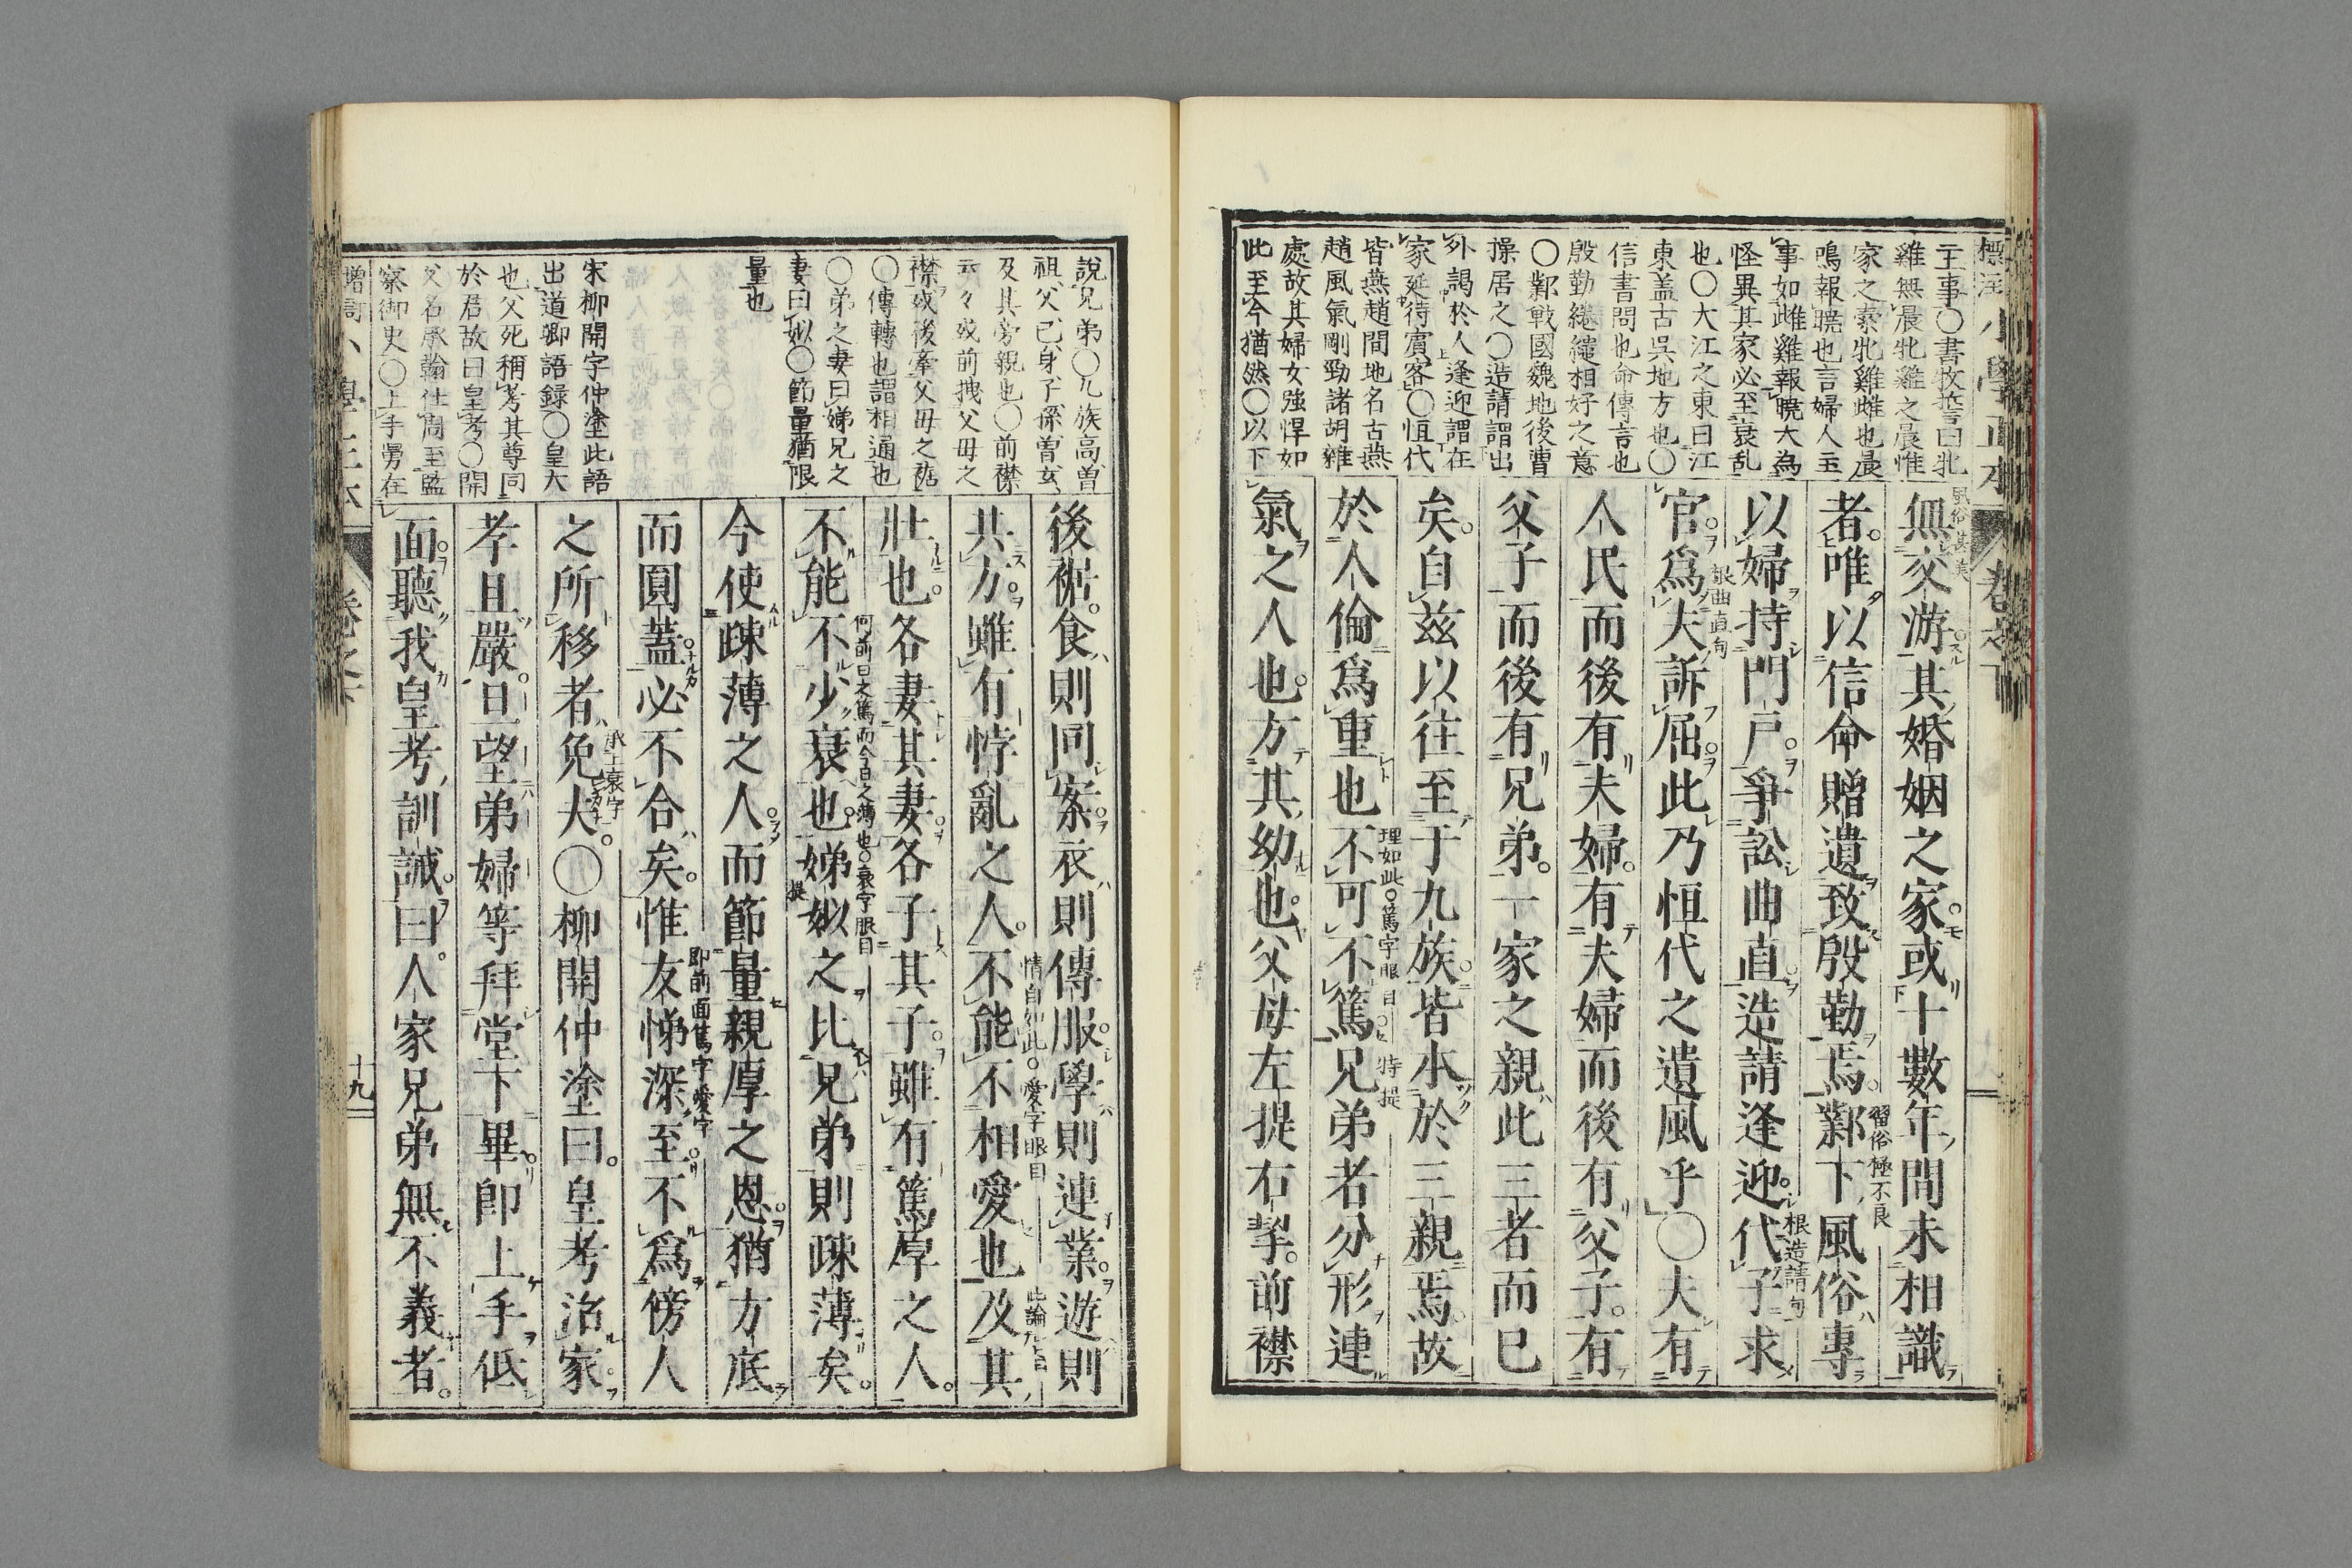 主事〇書牧誓曰牝
雞無晨牝雞之晨惟
家之索牝雞雌也晨
鳴報曉也言婦人主
事如雌雞報曉大為
怪異其家必至衰乱
也〇大江之東曰江
東盖古吳地方也〇
信書問也命傳言也
殷勤繾綣相好之意
〇鄴戰國魏地後曹
操居之〇造請謂出
外謁於人逢迎謂在
家延待賓客〇恒代
皆燕趙間地名古燕
趙風氣剛勁諸胡雜
處故其婦女強悍如
此至今猶然〇以下
無交游其婚姻之家或十數年間未相識
者唯以信命贈遺致殷勤焉鄴下風俗專
習俗極不良
以婦持門戶爭訟曲直造請逢迎代子求
根造請句
官為夫訴屈此乃恒代之遺風乎〇夫有
根曲直句
人民而後有夫婦有夫婦而後有父子有
父子而後有兄弟一家之親此三者而已
矣自茲以往至于九族皆本於三親焉故
於人倫為重也不可不篤兄弟者分形連
理如此〇篤字眼目〇特提
氣之人也方其幼也父母左提右挈前襟
說兄弟〇九族高曾
祖父己身子孫曾玄
及其旁親也〇前襟
云々或前拽父母之
襟或後牽父母之裾
〇傳轉也謂相通也
〇弟之妻曰娣兄之
妻曰姒〇節量猶限
量也
宋柳開字仲塗此語
出道卿語録〇皇大
也父死稱考其尊同
於君故曰皇考〇開
父名承翰仕周至監
察御史〇上手男在
後裾食則同案衣則傳服學則連業遊則
共方雖有悖亂之人不能不相愛也及其
情自如此〇愛字眼目
壯也各妻其妻各子其子雖有篤厚之人
不能不少衰也娣姒之比兄弟則疎薄矣
何前日之篤而今日之薄也〇衰字眼目
提
今使疎薄之人而節量親厚之恩猶方底
而圓蓋必不合矣惟友悌深至不為傍人
即前面篤字愛字
之所移者免夫〇柳開仲塗曰皇考治家
承上衰字
孝且嚴旦望弟婦等拜堂下畢即上手低
面聽我皇考訓誡曰人家兄弟無不義者
十九